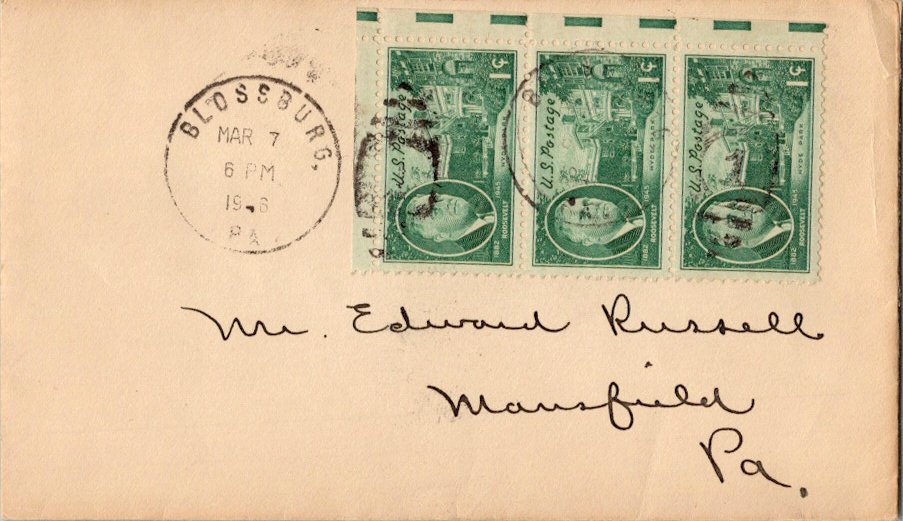 BLOSSBURG,
MAR 7
6 PM
PA
1¢
U.S. Postage
HYDE PARK
1882 ROOSEVELT 1945
1¢
U.S. Postage
HYDE PARK
1882 ROOSEVELT 1945
1¢
U.S. Postage
HYDE PARK
1882 ROOSEVELT 1945
Mr. Edward Russell
Mansfield
Pa.